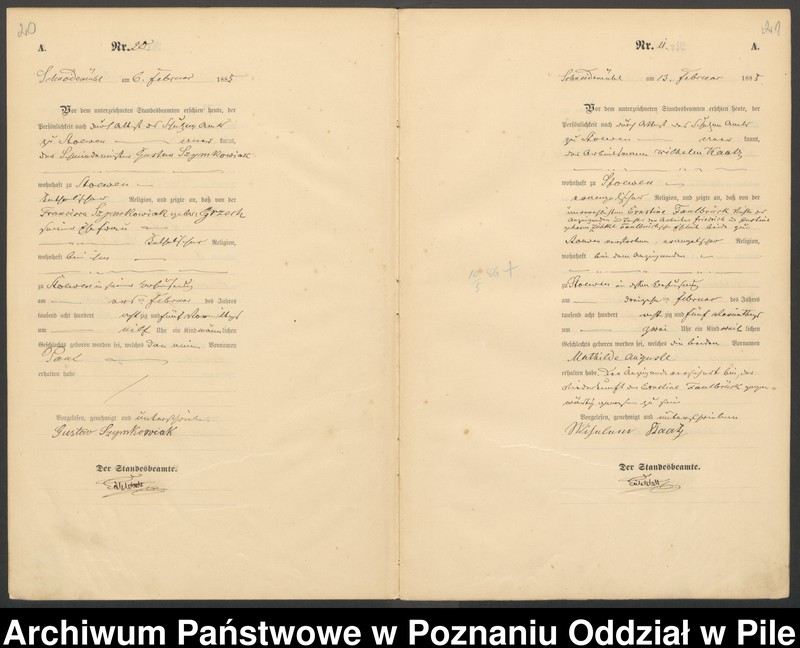 20
A.
Nr. 20
am 6. Februar 1885
Vor dem unterzeichneten Standesbeamten erschien heute, der
Persönlichkeit nach durch Attest des Schulzen Amts
zu Stoewen kannt,
Gustav Szymkowiak
wohnhaft zu Stoewen
katholischer Religion, und zeigte an, daß von der
Francisca Szymkowiak geborene Grzech
seiner Ehefrau
katholischer Religion,
wohnhaft bei ihm
zu Stoewen in seiner Behausung
am Februar des Jahres
tausend acht hundert achtzig und fünf
um Uhr ein Kind männlichen
Geschlechts geboren worden sei, welches den Vornamen
Paul
erhalten habe
Vorgelesen, genehmigt und unterschrieben
Gustav Szymkowiak
Der Standesbeamte.
21
Nr. 11
A.
am 13. Februar 1885
Vor dem unterzeichneten Standesbeamten erschien heute, der
Persönlichkeit nach durch Attest des Schulzen Amts
zu Stoewen kannt,
der Arbeitsmann Wilhelm Kaatz
wohnhaft zu Stoewen
evangelischer Religion, und zeigte an, daß von der
unverehelichten Ernstine Faulbrück
Stoewen verstorben, evangelischer Religion,
wohnhaft bei dem Anzeigenden
zu Stoewen in dessen Behausung
am Februar des Jahres
tausend acht hundert achtzig und fünf
um zwei Uhr ein Kind weiblichen
Geschlechts geboren worden sei, welches die beiden Vornamen
Mathilde Auguste
erhalten habe. Der Anzeigende
Niederkunft der Ernstine Faulbrück gegen-
wärtig gewesen zu sein
Vorgelesen, genehmigt und unterschrieben
Wilhelm Kaatz
Der Standesbeamte.
Archiwum Państwowe w Poznaniu Oddział w Pile